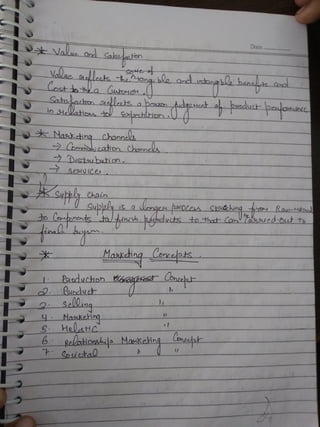 Date
* Value and Satisfaction
Value reflects the sum of tangible and intangible benefits and
Cost to the a Customer.
Satisfaction reflects a person judgement of product performance
in relations to expectation.
* Marketing Channels
→ Communication Channels
→ Distribution.
→ Service.
* Supply Chain
Supply is a longer process from Raw-material
to Components to finish products to that Can be carried out to
finale buyers.
* Marketing Concepts.
1. Production Concept
2. Product "
3. Selling "
4. Marketing "
5. Holistic "
6. Relationships Marketing Concept
7. Societal " "